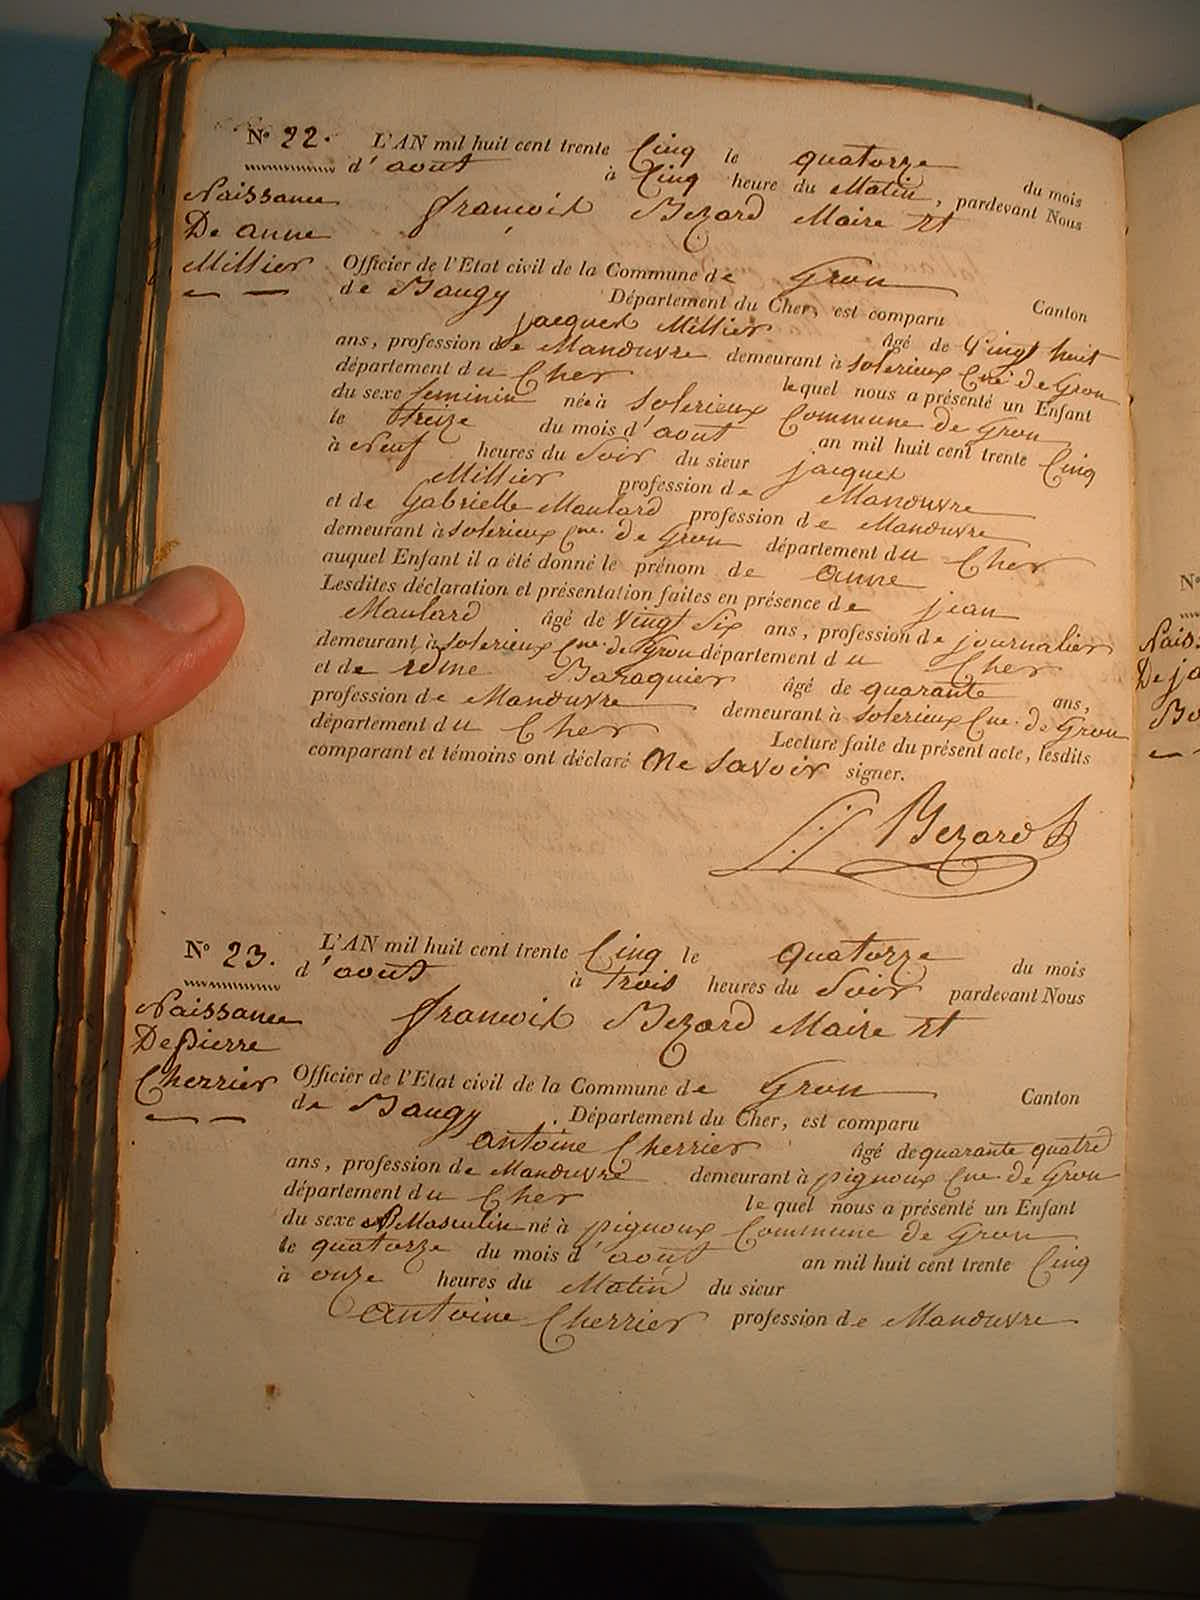 N° 22.
Naissance
De anne
Millier
L'AN mil huit cent trente Cinq le quatorze du mois
d'aout à Cinq heure du Matin, pardevant Nous
francois Bezard Maire Et
Officier de l'Etat civil de la Commune de Gron Canton
de Baugy Département du Cher, est comparu
jacques Millier âgé de Vingt huit
ans, profession de Manœuvre demeurant à Solerieux Cne de Gron
département du Cher lequel nous a présenté un Enfant
du sexe feminin née à Solerieux Commune de Gron
le treize du mois d'aout an mil huit cent trente Cinq
à Neuf heures du Soir du sieur jacques
Millier profession de Manœuvre
et de Gabrielle Maulard profession de Manœuvre
demeurant à Solerieux Cne. de Gron département du Cher
auquel Enfant il a été donné le prénom de anne
Lesdites déclaration et présentation faites en présence de jean
Maulard âgé de Vingt Six ans, profession de journalier
demeurant à Solerieux Cne de Gron département du Cher
et de Baraquier âgé de quarante ans,
profession de Manœuvre demeurant à Solerieux Cne. de Gron
département du Cher Lecture faite du présent acte, lesdits
comparant et témoins ont déclaré Ne Savoir signer.
Bezard
N° 23.
Naissance
De Pierre
Cherrier
L'AN mil huit cent trente Cinq le quatorze du mois
d'aout à trois heures du Soir pardevant Nous
francois Bezard Maire Et
Officier de l'Etat civil de la Commune de Gron Canton
de Baugy Département du Cher, est comparu
antoine Cherrier âgé de quarante quatre
ans, profession de Manœuvre demeurant à pignoux Cne de Gron
département du Cher le quel nous a présenté un Enfant
du sexe Masculin né à pignoux Commune de Gron
le quatorze du mois d'aout an mil huit cent trente Cinq
à onze heures du Matin du sieur
antoine Cherrier profession de Manœuvre
N°
Nais
De ja
Bo